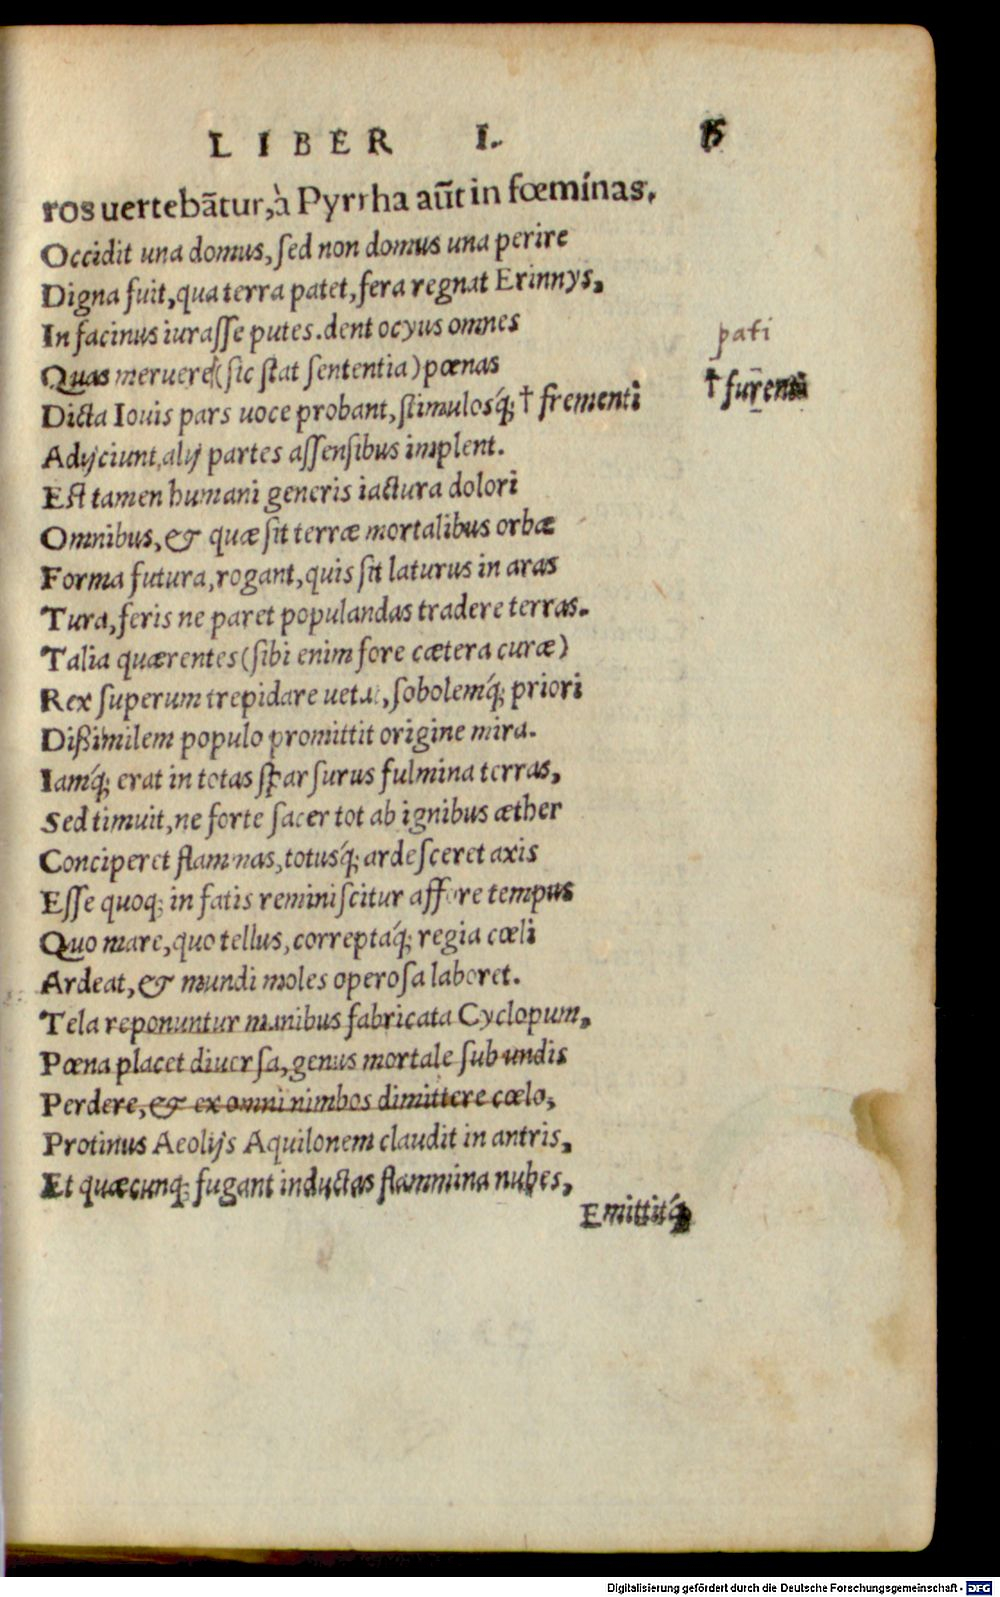 LIBER I. 15
ros uertebãtur, à Pyrrha aũt in fœminas.
Occidit una domus, sed non domus una perire
Digna fuit, qua terra patet, fera regnat Erinnys,
In facinus iurasse putes. dent ocyus omnes
pati
Quas meruere (sic stat sententia) pœnas
Dicta Iouis pars uoce probant, stimulosq́; † frementi
† furenti
Adijciunt, alij partes assensibus implent.
Est tamen humani generis iactura dolori
Omnibus, & quæ sit terræ mortalibus orbæ
Forma futura, rogant, quis sit laturus in aras
Tura, feris ne paret populandas tradere terras.
Talia quærentes (sibi enim fore cætera curæ)
Rex superum trepidare uetat, sobolemq́; priori
Dißimilem populo promittit origine mira.
Iamq́; erat in totas sparsurus fulmina terras,
Sed timuit, ne forte sacer tot ab ignibus æther
Conciperet flammas, totusq́; ardesceret axis
Esse quoq; in fatis reminiscitur affore tempus
Quo mare, quo tellus, correptaq́; regia cœli
Ardeat, & mundi moles operosa laboret.
Tela reponuntur manibus fabricata Cyclopum,
Pœna placet diuersa, genus mortale sub undis
Perdere, & ex omni nimbos dimittere cœlo,
Protinus Aeolijs Aquilonem claudit in antris,
Et quæcunq; fugant inductas flammina nubes,
Emittitq́;
Digitalisierung gefördert durch die Deutsche Forschungsgemeinschaft - DFG